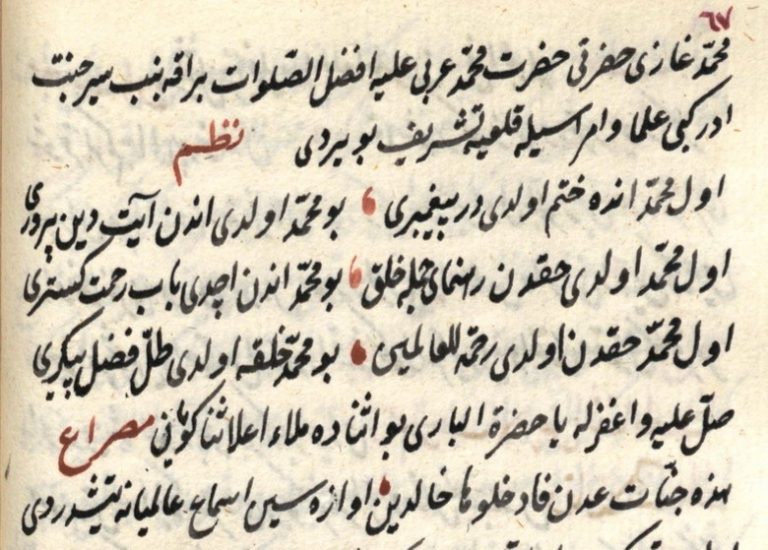 ٦٧
محمّد غازی حضرتی حضرت محمّد عربی علیه افضل الصّلوات براقه بنب سیر جنّت
ادر کبی علما و امراسیله قلعیه تشریف بویردی نظم
اول محمّد انده ختم اولدی در پیغمبری بو محمّد اولدی اندن آیت دین پروری
اول محمّد اولدی حقدن رهنمای جمله خلق بو محمّد اندن اچدی باب رحمت کستری
اول محمّد حقدن اولدی رحمة للعالمین بو محمّد خلقه اولدی ظلّ فضل پیکری
صلّ علیه واغفر له یا حضرة الباری بو اثناده ملاء اعلا ثنا کویی مصراع
هذه جنّات عدن فادخلوها خالدین اوازه سین اسماع عالمیانه یتیشدردی